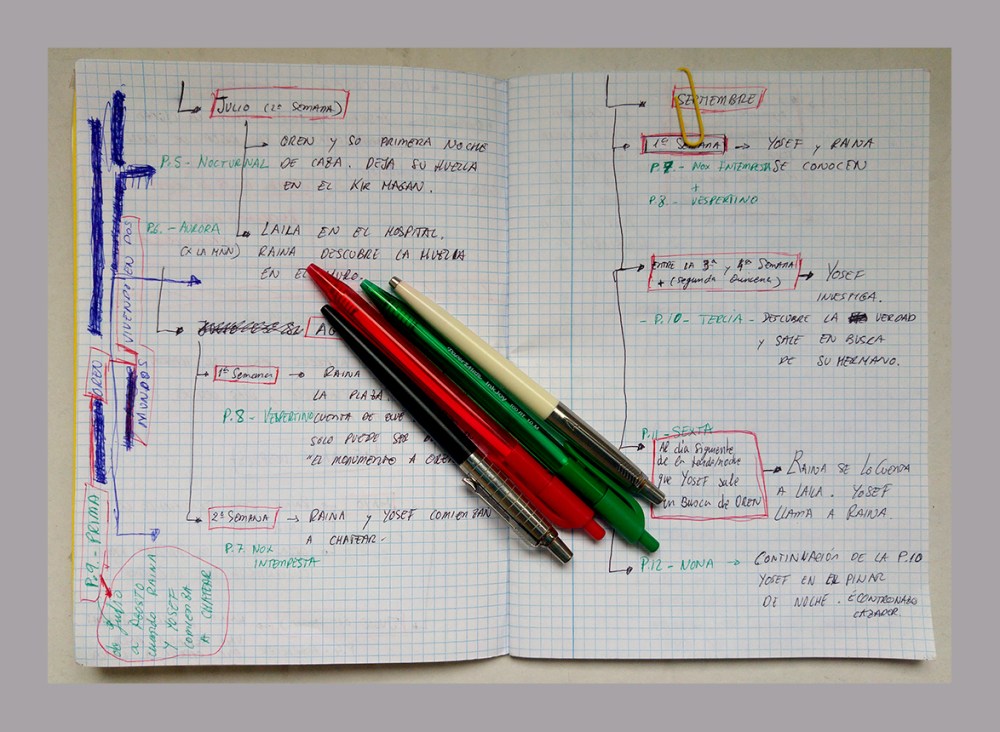 JULIO (2ª SEMANA)
OREN Y SO PRIMERA NOCHE
P.5 - NOCTURNAL DE CAZA. DEJA SU HUELLA
EN EL KIR MAGAN.
P.6.- AURORA
LAILA EN EL HOSPITAL.
RAINA DESCUBRE LA HUELLA
EN EL MURO.
1ª Semana
RAINA
LA PLAZA
P.8 - VESPERTINO CUENTA DE QUE
SOLO PUEDE SER
"EL MONUMENTO A
2ª SEMANA
RAINA Y YOSEF COMIENZAN
A CHATEAR.
P.7 NOX
INTEMPESTA
OREN
VIVENDO EN DOS
MUNDOS
P.9.- PRIMA
de Julio
a Agosto
cuando RAINA
y YOSEF
COMIENZA
A CHATEAR
SEPTIEMBRE
1ª SEMANA
YOSEF Y RAINA
P.7.- NOX INTEMPESTA SE CONOCEN
+
P.8.- VESPERTINO
ENTRE LA 3ª y 4ª SEMANA
+ (segunda Quincena)
YOSEF
INVESTIGA.
- P.10 - TERCIA - DESCUBRE LA VERDAD
Y SALE EN BUSCA
DE SU HERMANO.
P.11 - SEXTA
Al día siguiente
de la
que YOSEF sale
en Busca de OREN
RAINA SE LO CUENTA
A LAILA. YOSEF
LLAMA A RAINA.
P.12 - NONA
CONTINUACIÓN DE LA P.10
YOSEF EN EL PINAR
DE NOCHE.
CAZADOR.